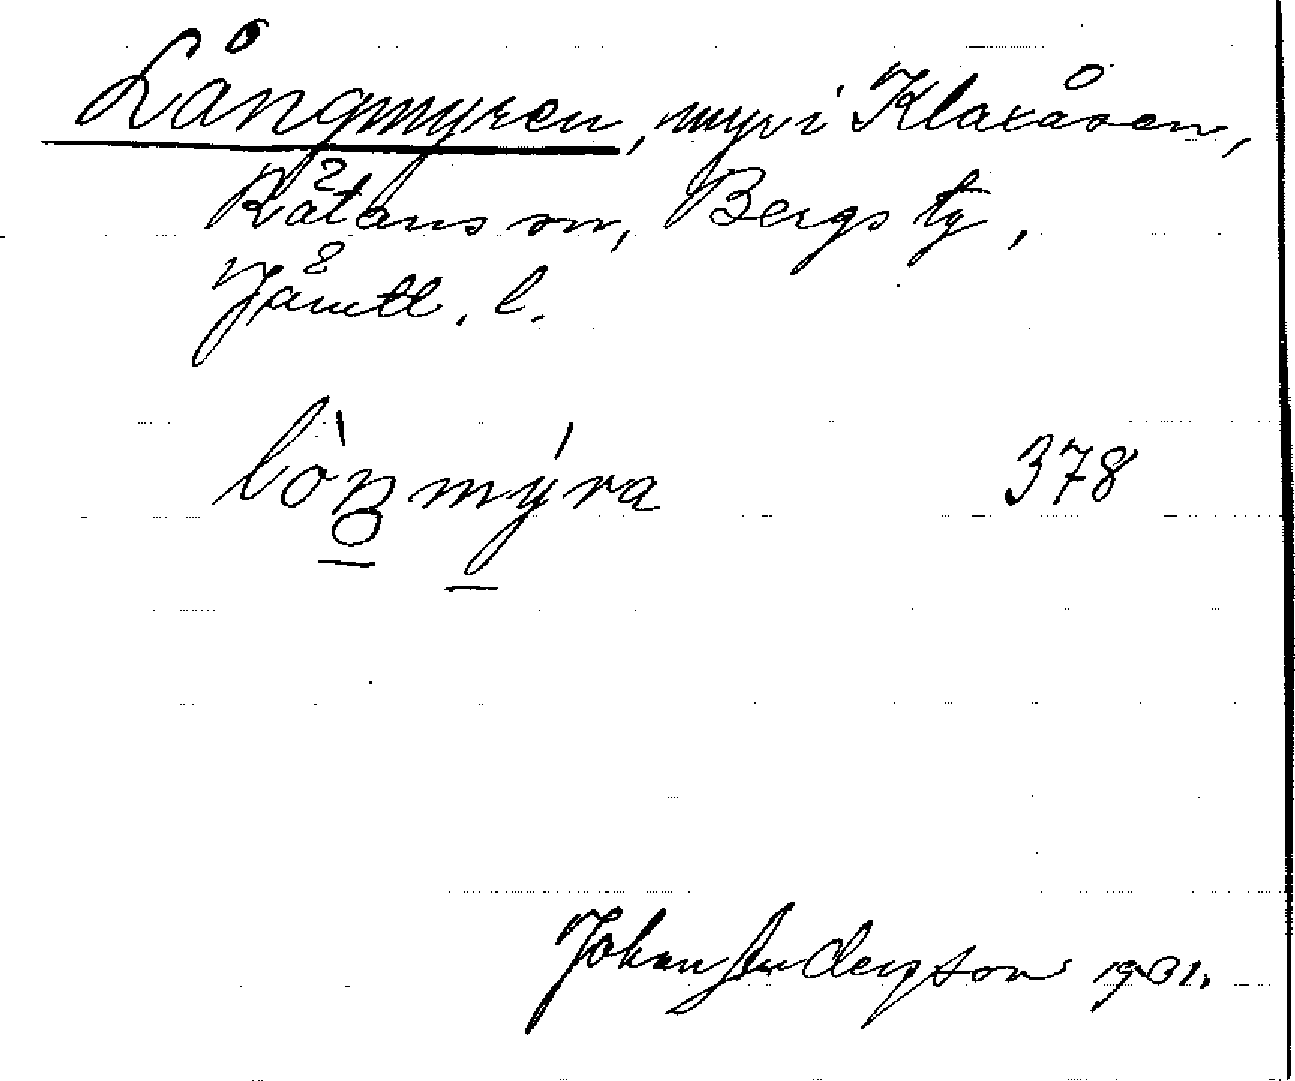 Långmyren, myr i Klaxåsen,
Rätans sn, Bergs tg,
Jämtl. l.
lòŋmýra 378
Johan Andersson 1931.